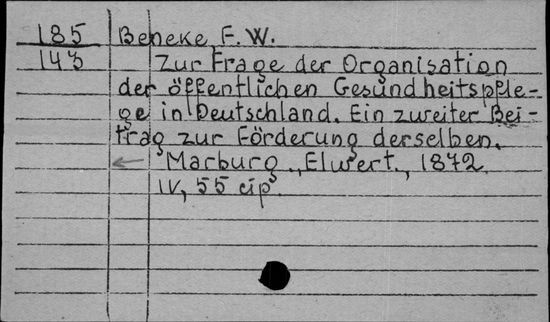 185 Beneke F. W.
143 Zur Frage der Organisation
der öffentlichen Gesundheitspfle-
ge in Deutschland. Ein zweiter Bei-
trag zur Förderung derselben.
Marburg., Elwert., 1872.
IV, 55 стр.